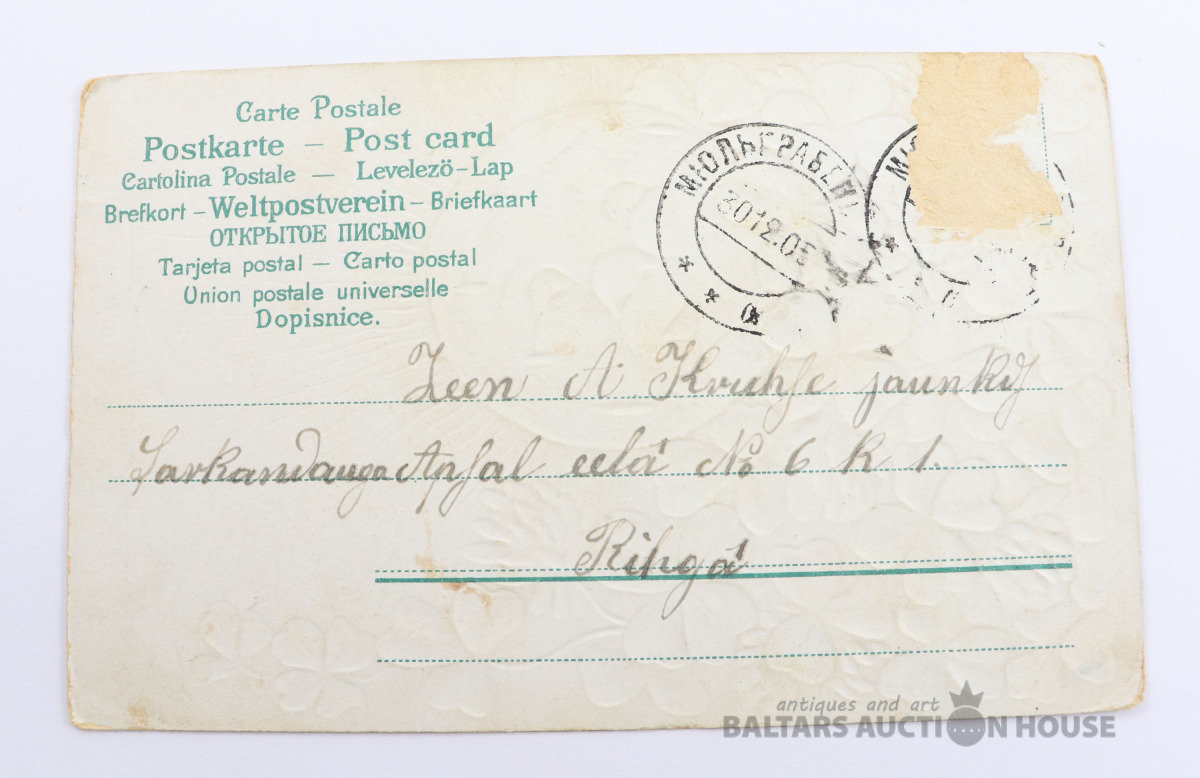 Carte Postale
Postkarte – Post card
Cartolina Postale — Levelezö-Lap
Brefkort – Weltpostverein – Briefkaart
ОТКРЫТОЕ ПИСЬМО
Tarjeta postal — Carto postal
Union postale universelle
Dopisnice.
МЮЛЬГРАБЕНЪ
30 12.05
М
Zeen A. Kruhse jaunkdʒ
Sarkandauga Apsal eelâ № 6 K 1.
Rihgâ
antiques and art
BALTARS AUCTION HOUSE